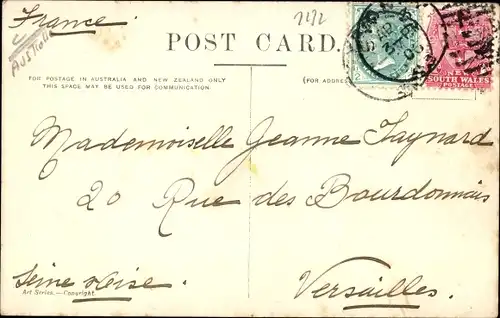 France
Australie
2192
POST CARD.
FOR POSTAGE IN AUSTRALIA AND NEW ZEALAND ONLY
THIS SPACE MAY BE USED FOR COMMUNICATION.
(FOR ADDRESS
ONE
SOUTH WALES
POSTAGE
Mademoiselle Jeanne Taynard
20 Rue des Bourdonnais
Seine & Oise.
Versailles.
Art Series.—Copyright.